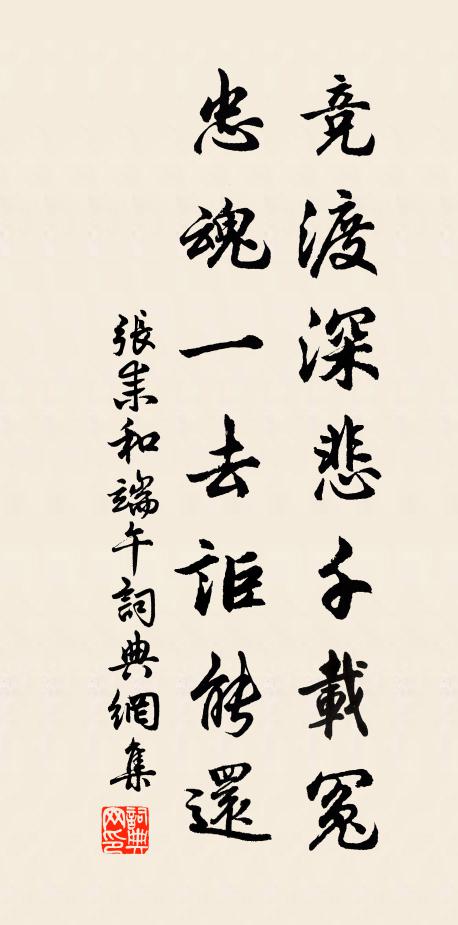 竞渡深悲千載冤
忠魂一去詎能還
張耒和端午詞典網集
詞典网印